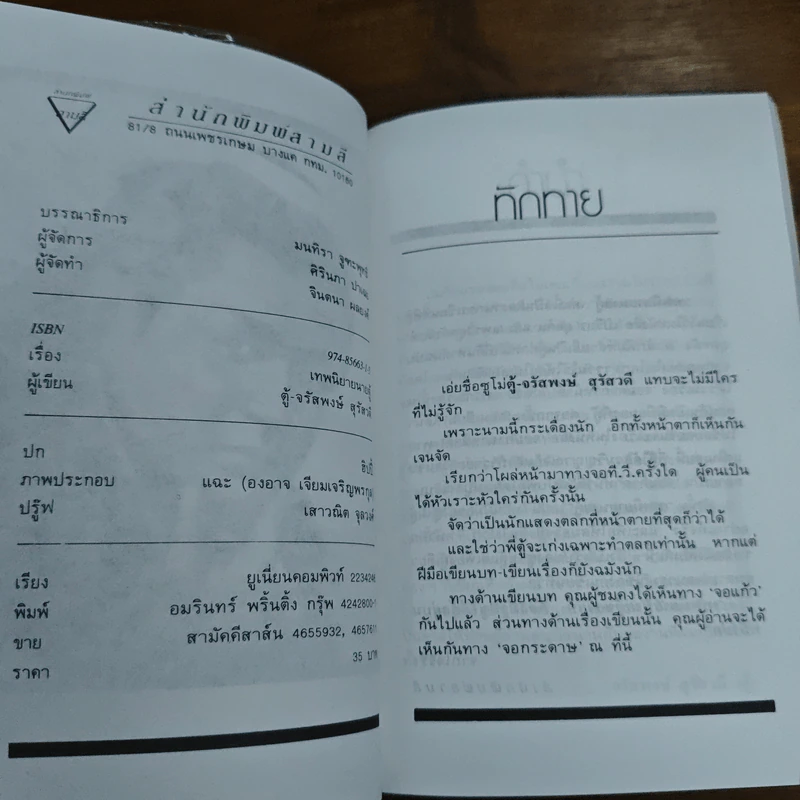 สามสี
สำนักพิมพ์สามสี
81/8 ถนนเพชรเกษม บางแค กทม. 10160
บรรณาธิการ มนทิรา
ผู้จัดการ ศิรินภา
ผู้จัดทำ จินตนา
ISBN 974-85663-
เรื่อง เทพนิยายนายตู้
ผู้เขียน ตู้-จรัสพงษ์ สุรัสวดี
ปก ฮิปปี้
ภาพประกอบ แฉะ (องอาจ เจียมเจริญพรกุล)
ปรู๊ฟ เสาวณิต จุลวงศ์
เรียง ยูเนี่ยนคอมพิวท์ 2234246
พิมพ์ อมรินทร์ พริ้นติ้ง กรุ๊พ 4242800-
ขาย สามัคคีสาส์น 4655932, 465761
ราคา 35 บาท
ทักทาย
เอ่ยชื่อซูโม่ตู้-จรัสพงษ์ สุรัสวดี แทบจะไม่มีใคร
ที่ไม่รู้จัก
เพราะนามนี้กระเดื่องนัก อีกทั้งหน้าตาก็เห็นกัน
เจนจัด
เรียกว่าโผล่หน้ามาทางจอที.วี.ครั้งใด ผู้คนเป็น
ได้หัวเราะหัวใคร่กันครั้งนั้น
จัดว่าเป็นนักแสดงตลกที่หน้าตายที่สุดก็ว่าได้
และใช่ว่าพี่ตู้จะเก่งเฉพาะทำตลกเท่านั้น หากแต่
ฝีมือเขียนบท-เขียนเรื่องก็ยังฉมังนัก
ทางด้านเขียนบท คุณผู้ชมคงได้เห็นทาง ‘จอแก้ว’
กันไปแล้ว ส่วนทางด้านเรื่องเขียนนั้น คุณผู้อ่านจะได้
เห็นกันทาง ‘จอกระดาษ’ ณ ที่นี้